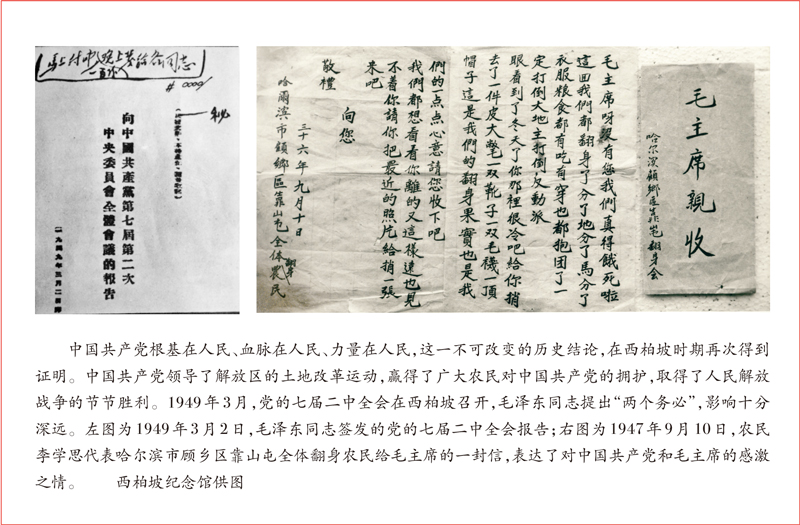 馬上付印晚上發給各同志
向中國共產黨第七屆第二次
中央委員會全體會議的報告
一九四九年三月二日
毛主席親收
哈尔濱顧鄉區靠山屯翻身会
毛主席呀沒有您我們真得餓死啦
這回我們都翻身了分了地分了馬分了
衣服粮食都有吃有穿也都抱团了一
定打倒大地主打倒反動派
眼看到了冬天了你那裡很冷吧給你捎
去了一件皮大氅一双靴子一双毛襪一頂
帽子這是我們的翻身果實也是我
們的一点点心意請您收下吧
我們都想看看你離的又這樣遠也見
不着你請你把最近的照片給捎一張
来吧
向您
敬禮
三十六年九月十日
哈爾濱市顧鄉區靠山屯全体翻身農民
中国共产党根基在人民、血脉在人民、力量在人民，这一不可改变的历史结论，在西柏坡时期再次得到
证明。中国共产党领导了解放区的土地改革运动，赢得了广大农民对中国共产党的拥护，取得了人民解放
战争的节节胜利。1949年3月，党的七届二中全会在西柏坡召开，毛泽东同志提出“两个务必”，影响十分
深远。左图为1949年3月2日，毛泽东同志签发的党的七届二中全会报告；右图为1947年9月10日，农民
李学思代表哈尔滨市顾乡区靠山屯全体翻身农民给毛主席的一封信，表达了对中国共产党和毛主席的感激
之情。 西柏坡纪念馆供图